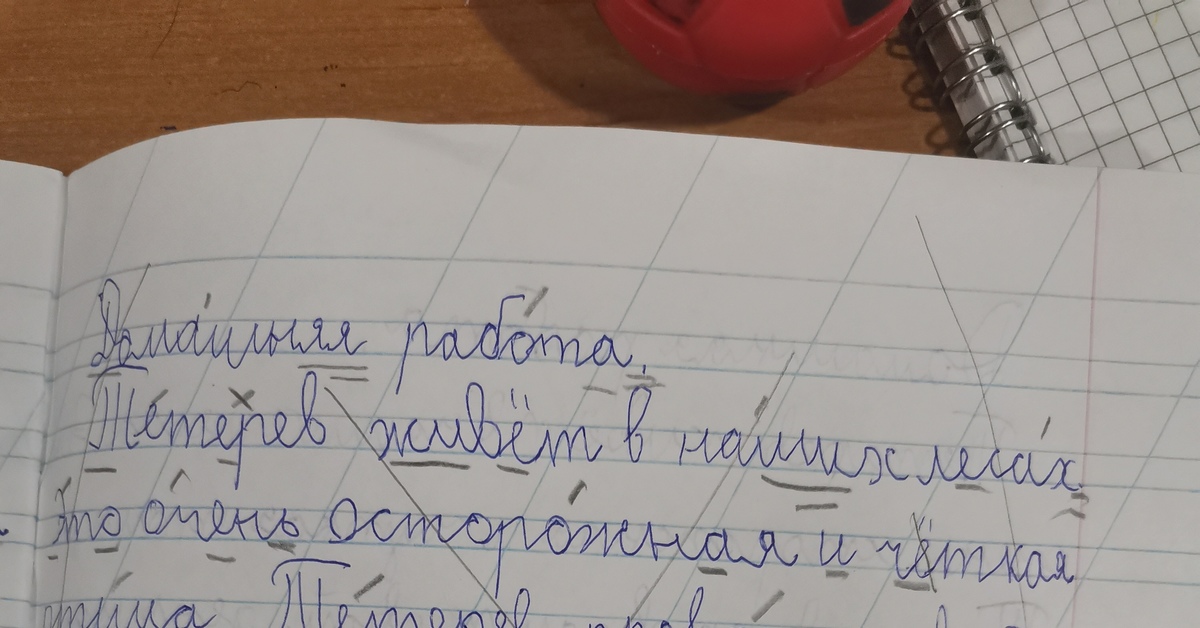 Домашняя работа.
Тетерев живёт в наших лесах.
Это очень осторожная и чёткая
птица. Тетерев